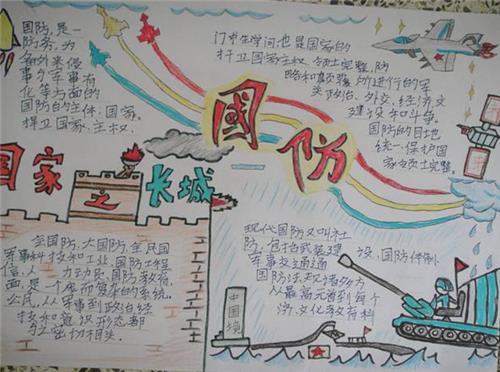 国防,是一
防务,为
备外来侵
事外军事有
化等方面的
国防的主体:国家。
捍卫国家、主权
门中生学问也是国家的
扞卫国家主权、领土完整,防
略和颠覆,所进行的军
类政治、外交、经济、文
建设和斗争。
国防的目地
统一,保护国
家领土完整。
國防
国家之长城
全国防,大国防,全民国
军事科技和工业,国防工程
信,人 力动员,国防教育,
面,是一个庞而复杂的系统。
公民,从军事到政治经
技和意识形态都
与之密切相关.
现代国防又叫社
防,包括武装建 设,国防体制
军事交通通
国防
从最高元首到每个
济、文化教育科
中国境